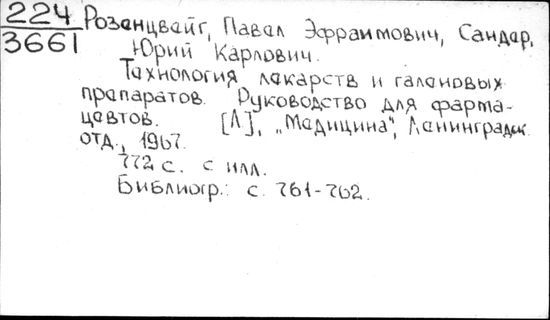 224
3661
Розенцвейг, Павел Эфраимович, Сандер,
Юрий Карлович.
Технология лекарств и галеновых
препаратов. Руководство для фарма-
цевтов. [Л], „Медицина", Ленинградск.
отд., 1967.
772 с. с илл.
Библиогр.: с. 761-762.